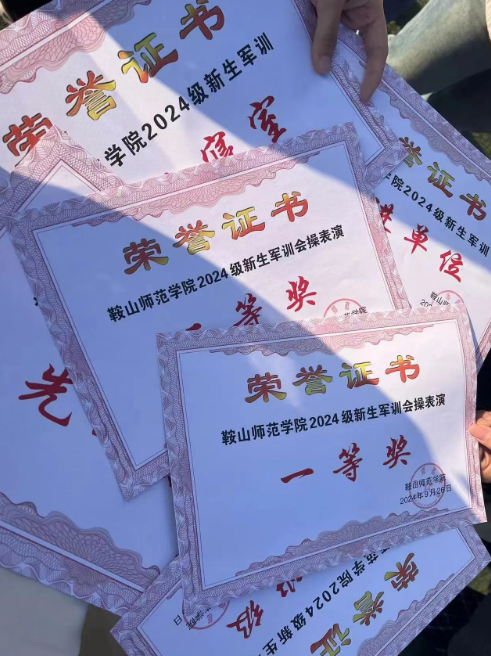 荣誉证书
学院2024级新生军训
寝室
荣誉证书
学院2024级新生军训
进单位
荣誉证书
鞍山师范学院2024级新生军训会操表演
一等奖
先
荣誉证书
鞍山师范学院2024级新生军训会操表演
一等奖
鞍山师范学院
2024年9月26日
荣誉证
范学院2024级新生
班